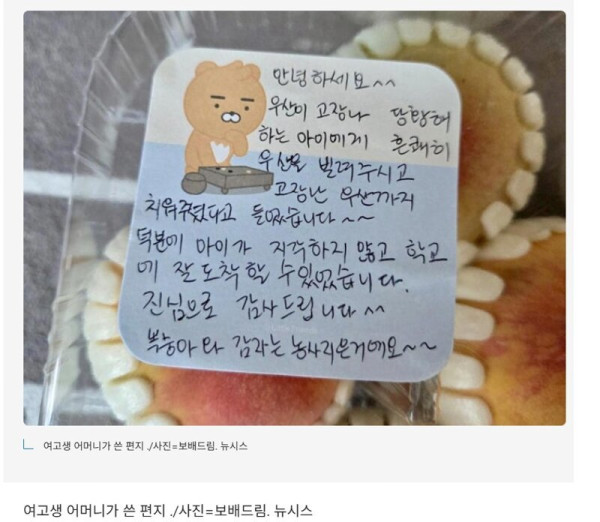 안녕하세요^^
우산이 고장나 당황해
하는 아이에게 흔쾌히
우산을 빌려주시고
고장난 우산까지
치워주셨다고 들었습니다~~
덕분에 아이가 지각하지 않고 학교
에 잘 도착할 수 있었습니다.
진심으로 감사드립니다^^
복숭아와 감자는 농사지은거에요~~
여고생 어머니가 쓴 편지 ./사진=보배드림. 뉴시스
여고생 어머니가 쓴 편지 ./사진=보배드림. 뉴시스